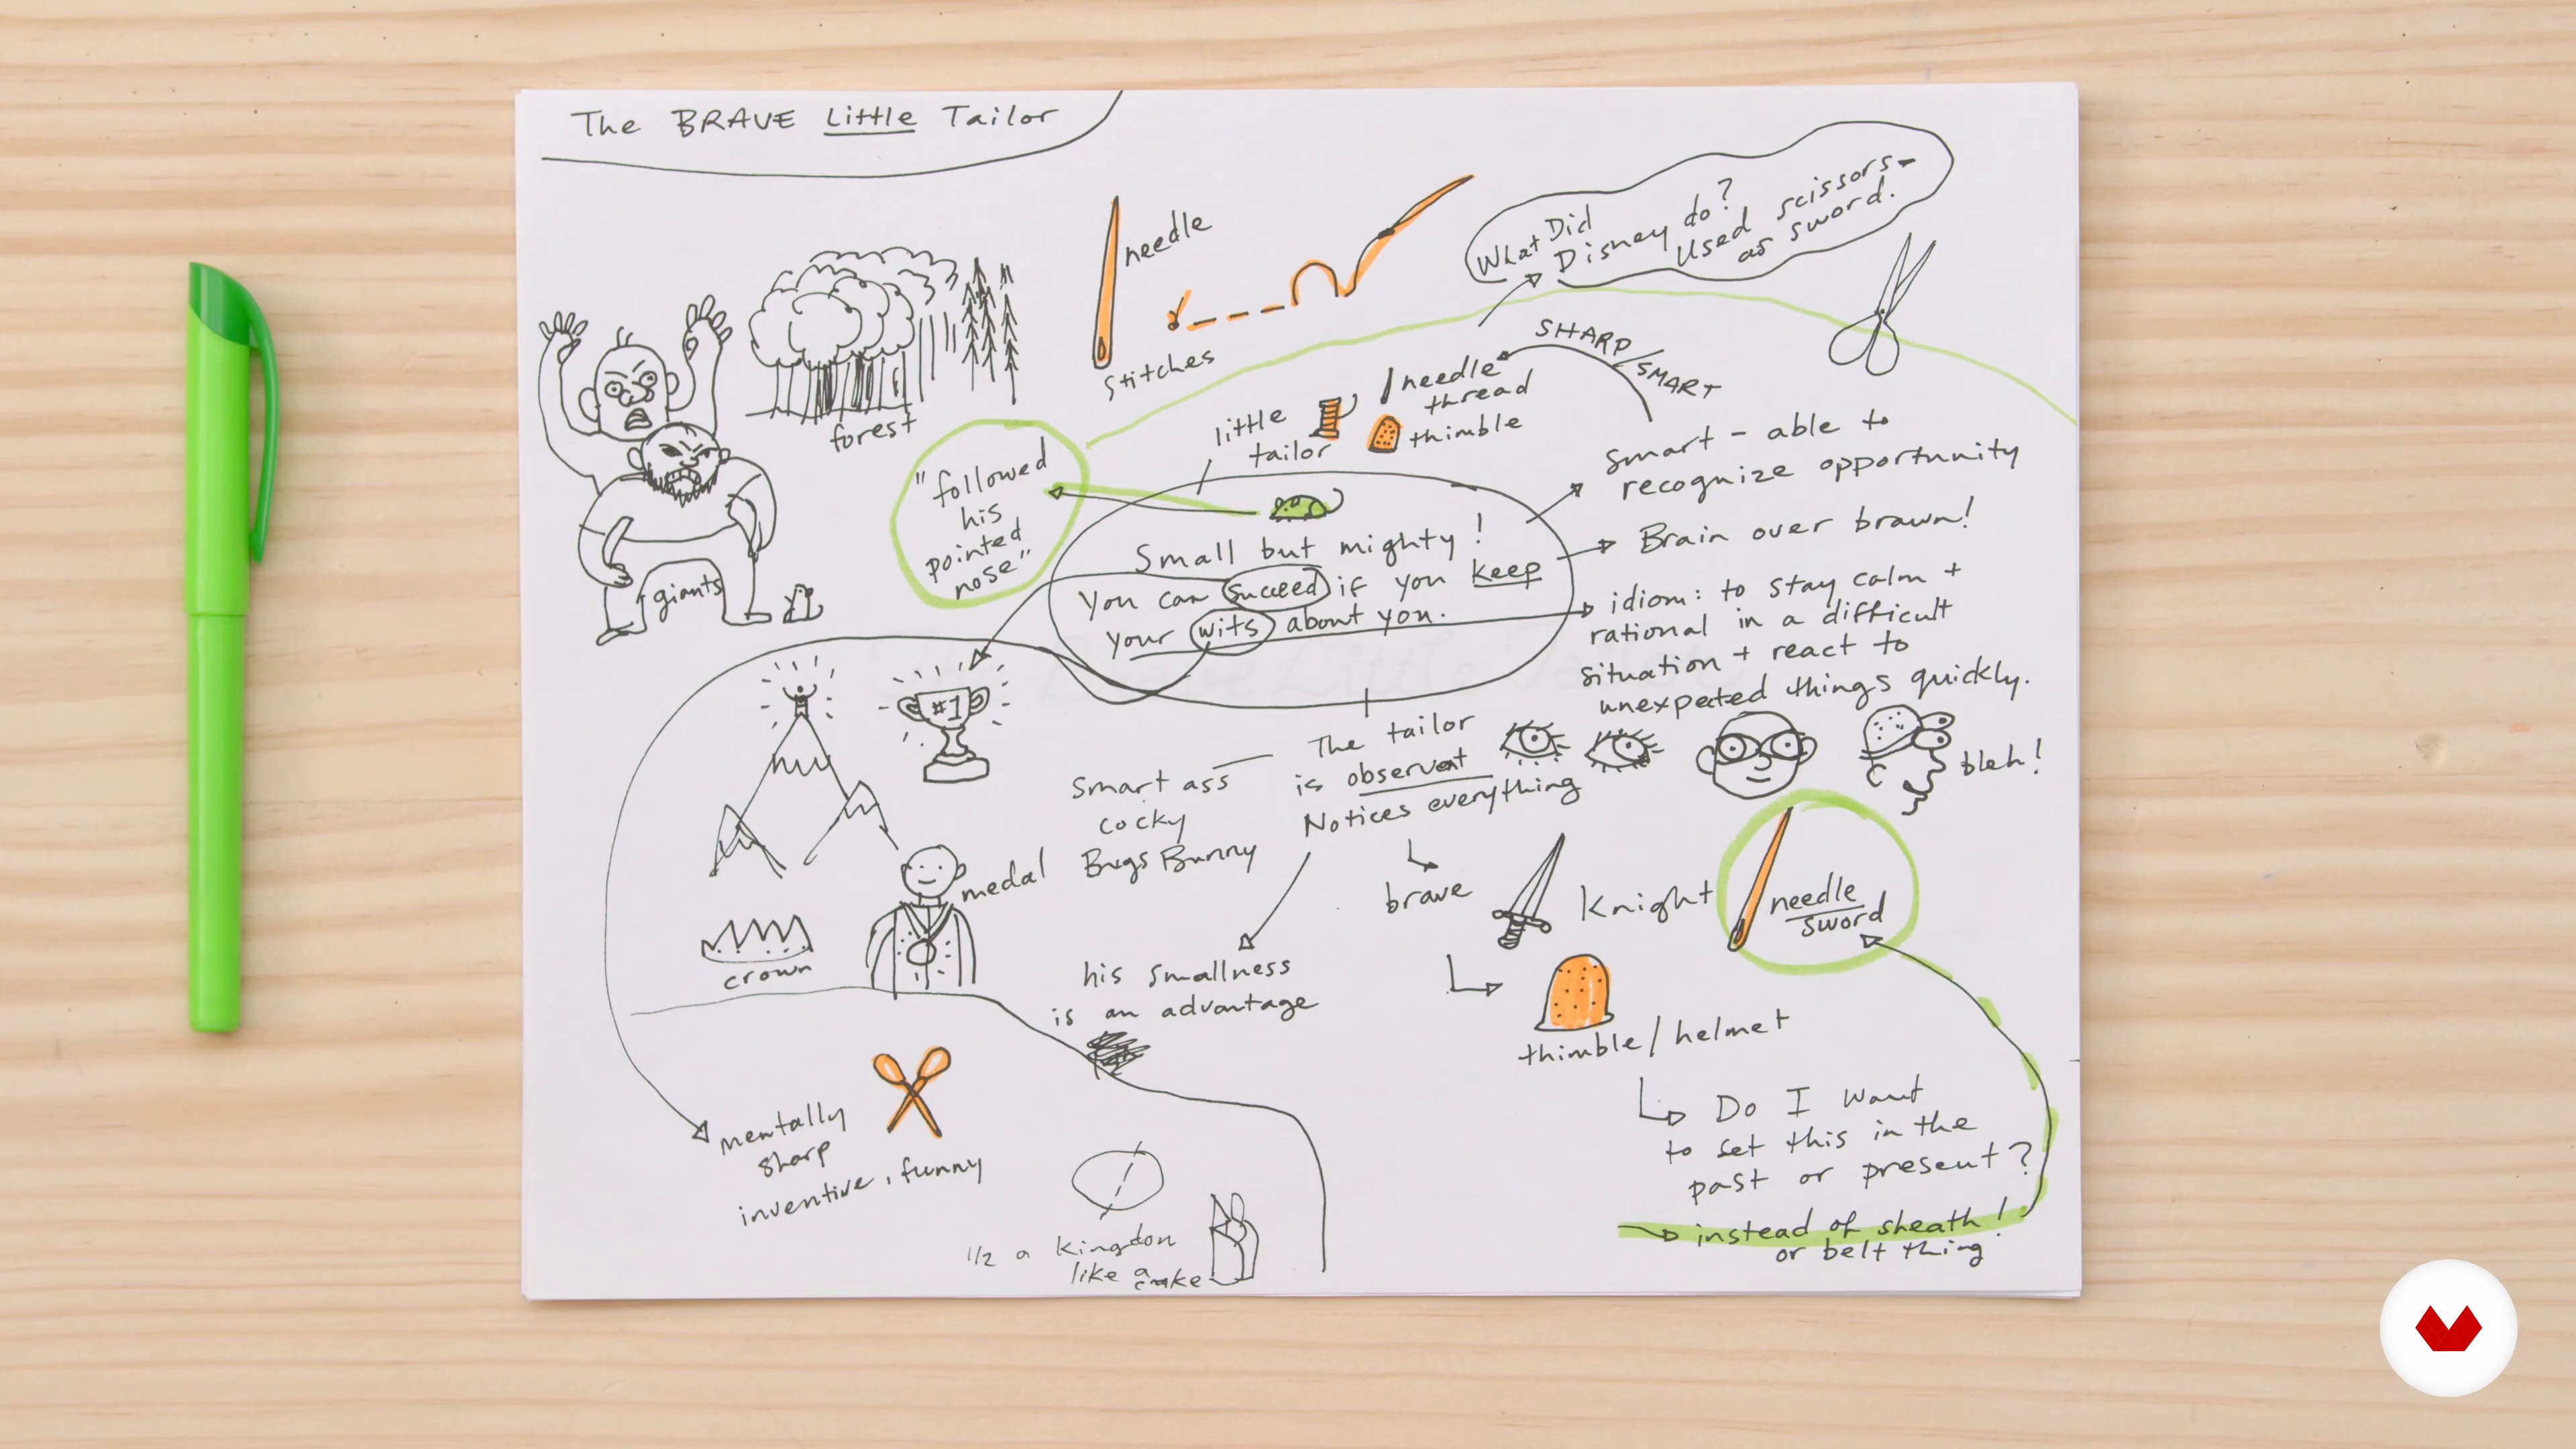 The BRAVE Little Tailor
needle
stitches
What Did
Disney do?
Used scissors-
as sword.
SHARP/SMART
forest
giants
little
tailor
needle
thread
thimble
"followed
his
pointed
nose"
Small but mighty!
You can succeed if you keep
your wits about you.
Smart - able to
recognize opportunity
Brain over brawn!
idiom: to stay calm +
rational in a difficult
situation + react to
unexpected things quickly.
bleh!
#1
The tailor
is observant
Notices everything
Smart ass
cocky
Bugs Bunny
medal
crown
brave
Knight
needle
sword
his smallness
is an advantage
thimble/helmet
Do I want
to set this in the
past or present?
instead of sheath!
or belt thing
mentally
sharp
inventive, funny
1/2 a Kingdon
like a cake